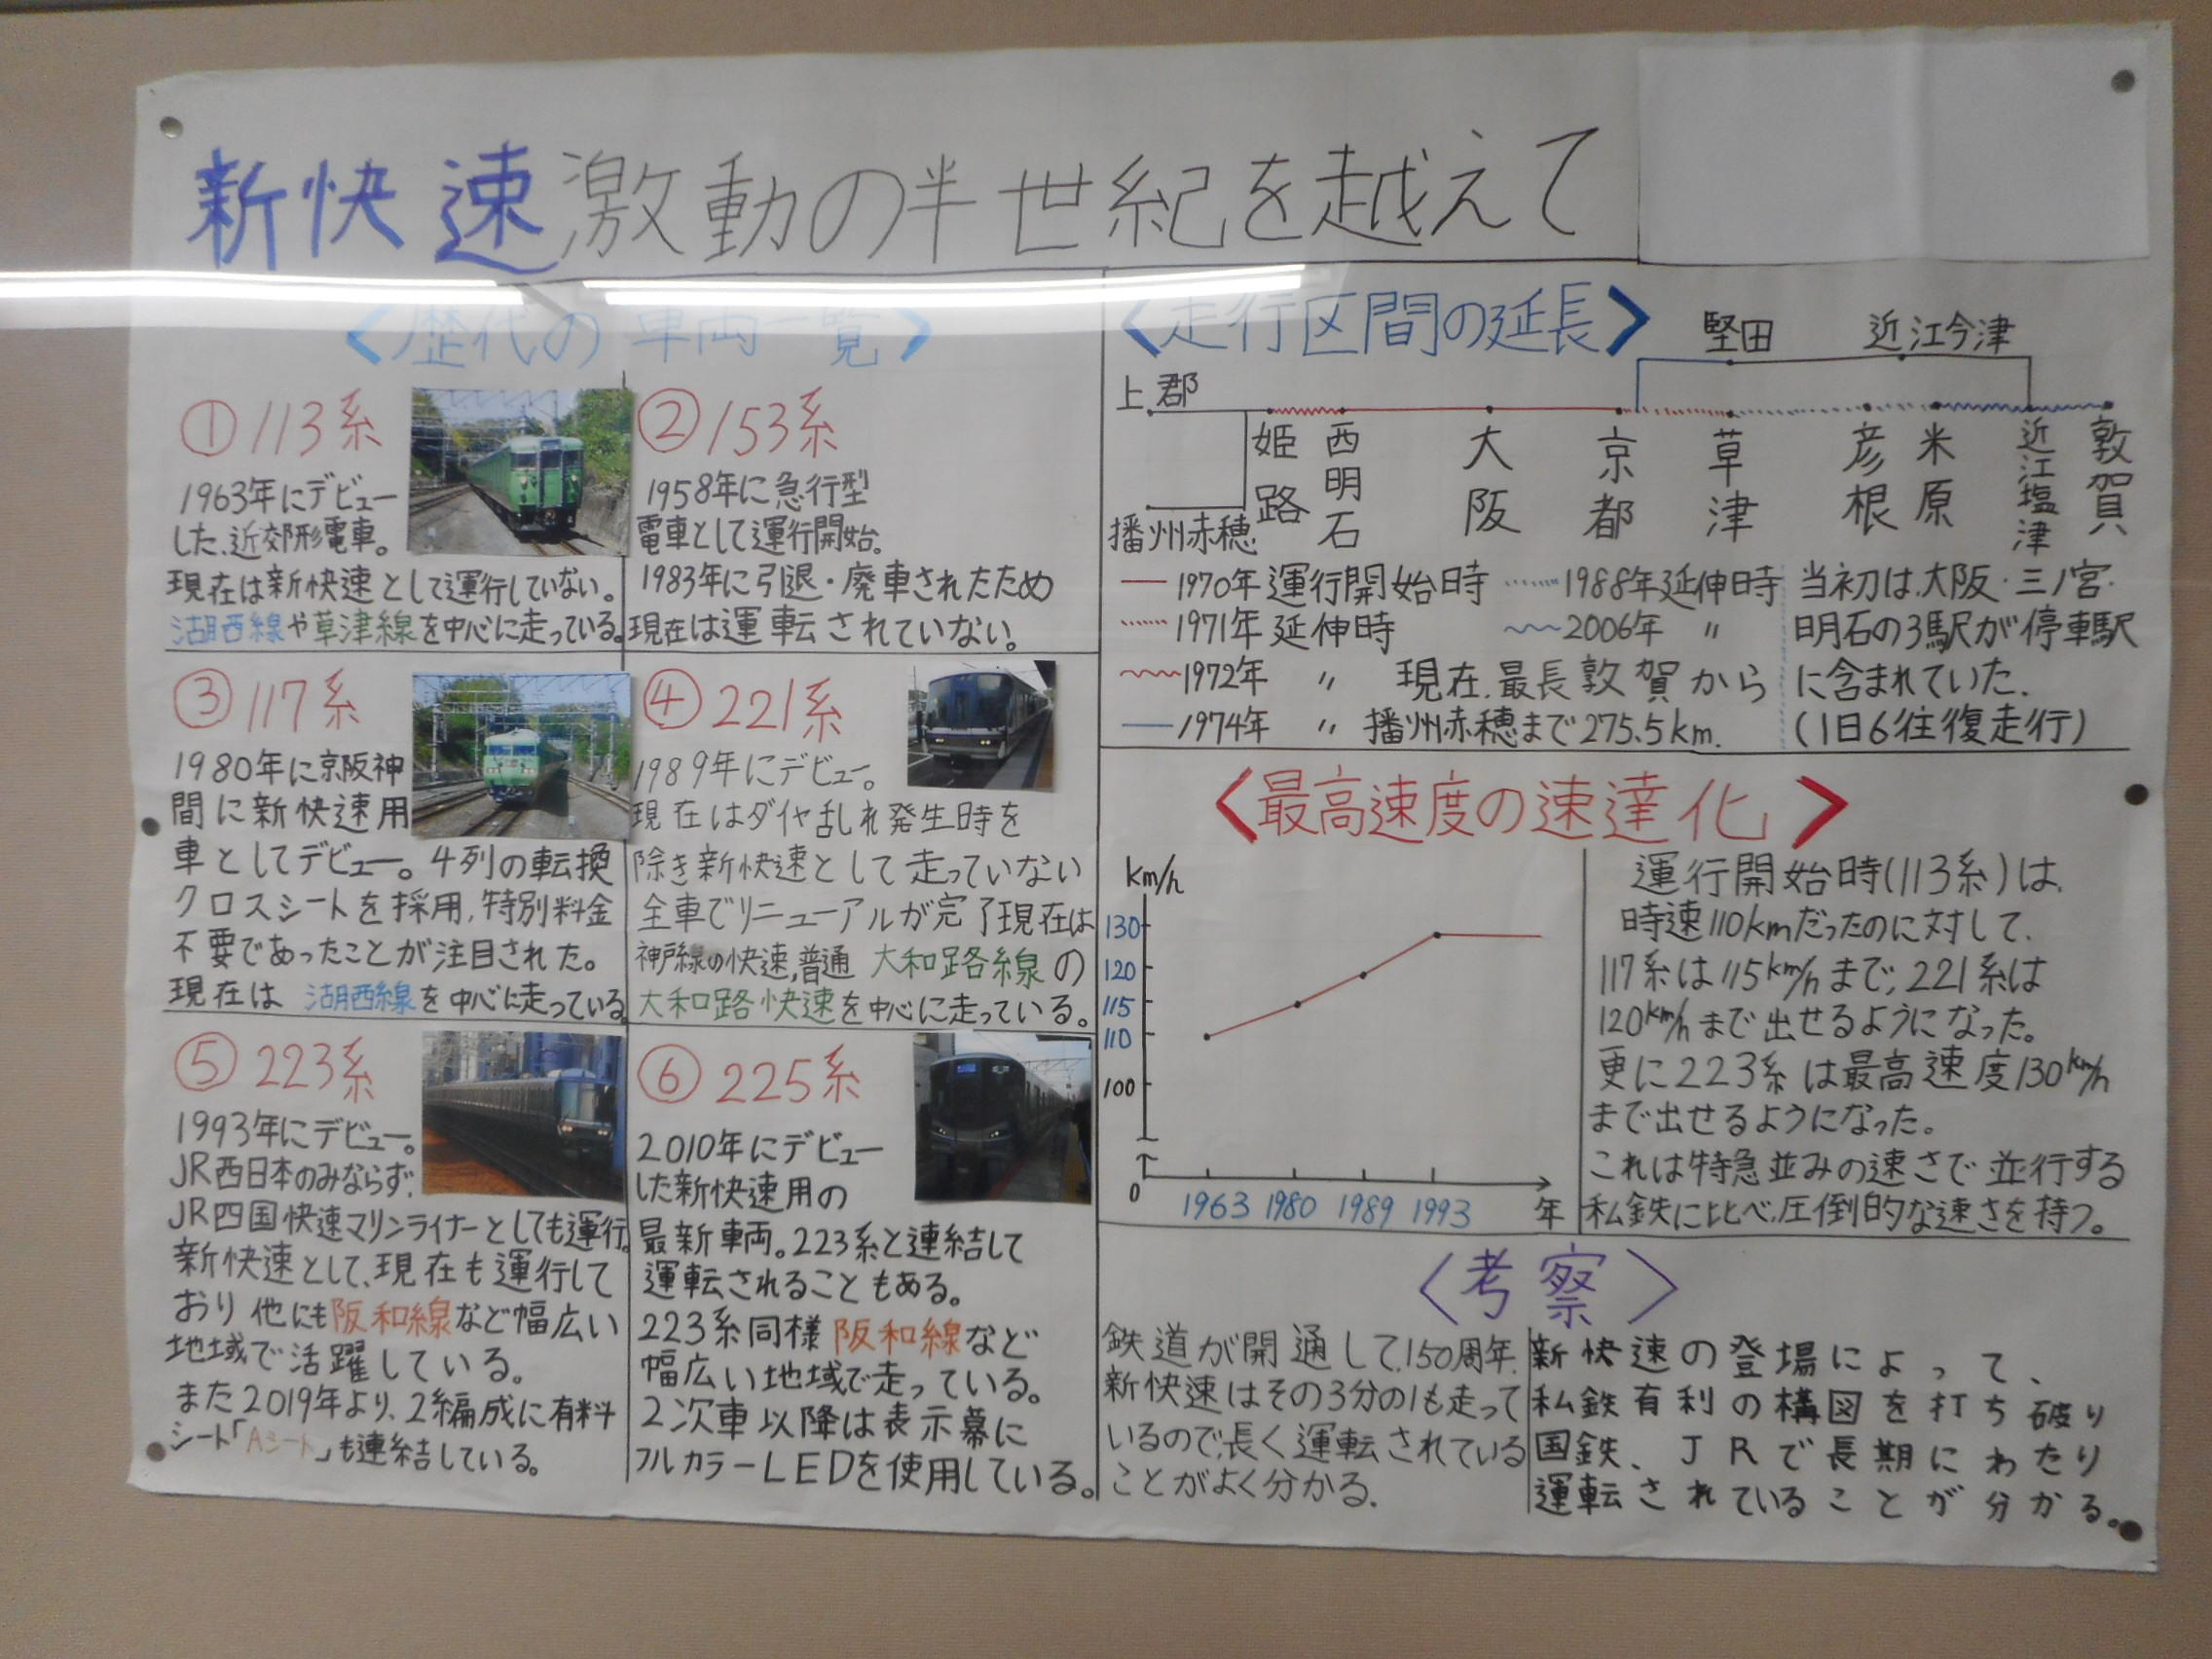 新快速激動の半世紀を越えて
<歴代の車両一覧>
①113系
1963年にデビュー
した、近郊形電車。
現在は新快速として運行していない。
湖西線や草津線を中心に走っている。
②153系
1958年に急行型
電車として運行開始。
1983年に引退・廃車されたため
現在は運転されていない。
③117系
1980年に京阪神
間に新快速用
車としてデビュー。4列の転換
クロスシートを採用,特別料金
不要であったことが注目された。
現在は 湖西線を中心に走っている。
④221系
1989年にデビュー。
現在はダイヤ乱れ発生時を
除き新快速として走っていない
全車でリニューアルが完了現在は
神戸線の快速,普通 大和路線の
大和路快速を中心に走っている。
⑤223系
1993年にデビュー。
JR西日本のみならず、
JR四国快速マリンライナーとしても運行。
新快速として、現在も運行して
おり他にも阪和線など幅広い
地域で活躍している。
また2019年より、2編成に有料
シート「Aシート」も連結している。
⑥225系
2010年にデビュー
した新快速用の
最新車両。223系と連結して
運転されることもある。
223系同様 阪和線など
幅広い地域で走っている。
2次車以降は表示幕に
フルカラーLEDを使用している。
<走行区間の延長>
堅田 近江今津
上郡
播州赤穂
姫路
西明石
大阪
京都
草津
彦根
米原
近江塩津
敦賀
1970年運行開始時
1971年延伸時
1972年 〃
1974年 〃
1988年延伸時
2006年 〃
現在、最長敦賀から
播州赤穂まで275.5km.
当初は、大阪・三ノ宮・
明石の3駅が停車駅
に含まれていた。
(1日6往復走行)
<最高速度の速達化>
km/h
130
120
115
110
100
0
1963 1980 1989 1993 年
運行開始時(113系)は、
時速110kmだったのに対して、
117系は115km/hまで、221系は
120km/hまで出せるようになった。
更に223系は最高速度130km/h
まで出せるようになった。
これは特急並みの速さで並行する
私鉄に比べ、圧倒的な速さを持つ。
<考察>
鉄道が開通して、150周年、
新快速はその3分の1も走って
いるので、長く運転されている
ことがよく分かる。
新快速の登場によって、
私鉄有利の構図を打ち破り
国鉄、JRで長期にわたり
運転されていることが分かる。